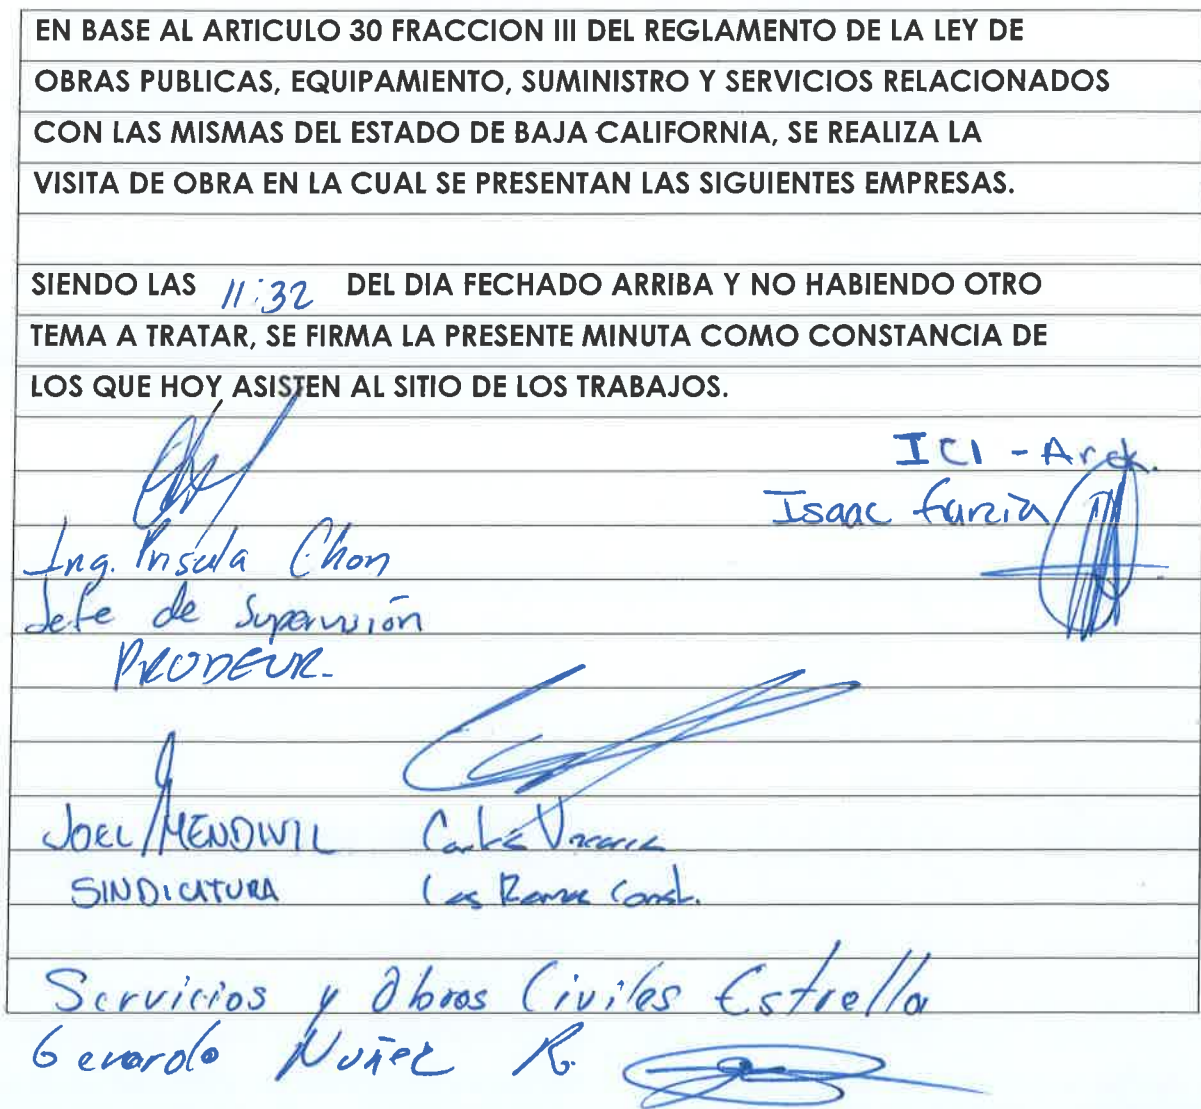 EN BASE AL ARTICULO 30 FRACCION III DEL REGLAMENTO DE LA LEY DE
OBRAS PUBLICAS, EQUIPAMIENTO, SUMINISTRO Y SERVICIOS RELACIONADOS
CON LAS MISMAS DEL ESTADO DE BAJA CALIFORNIA, SE REALIZA LA
VISITA DE OBRA EN LA CUAL SE PRESENTAN LAS SIGUIENTES EMPRESAS.
SIENDO LAS 11:32 DEL DIA FECHADO ARRIBA Y NO HABIENDO OTRO
TEMA A TRATAR, SE FIRMA LA PRESENTE MINUTA COMO CONSTANCIA DE
LOS QUE HOY ASISTEN AL SITIO DE LOS TRABAJOS.
ICI - Arck.
Isaac García
Ing. Chon
Jefe de Supervisión
PRODEUR.
JOEL MENDIVIL
SINDICATURA
Const.
Servicios y Obras Civiles Estrella
Gerardo Nuñez R.